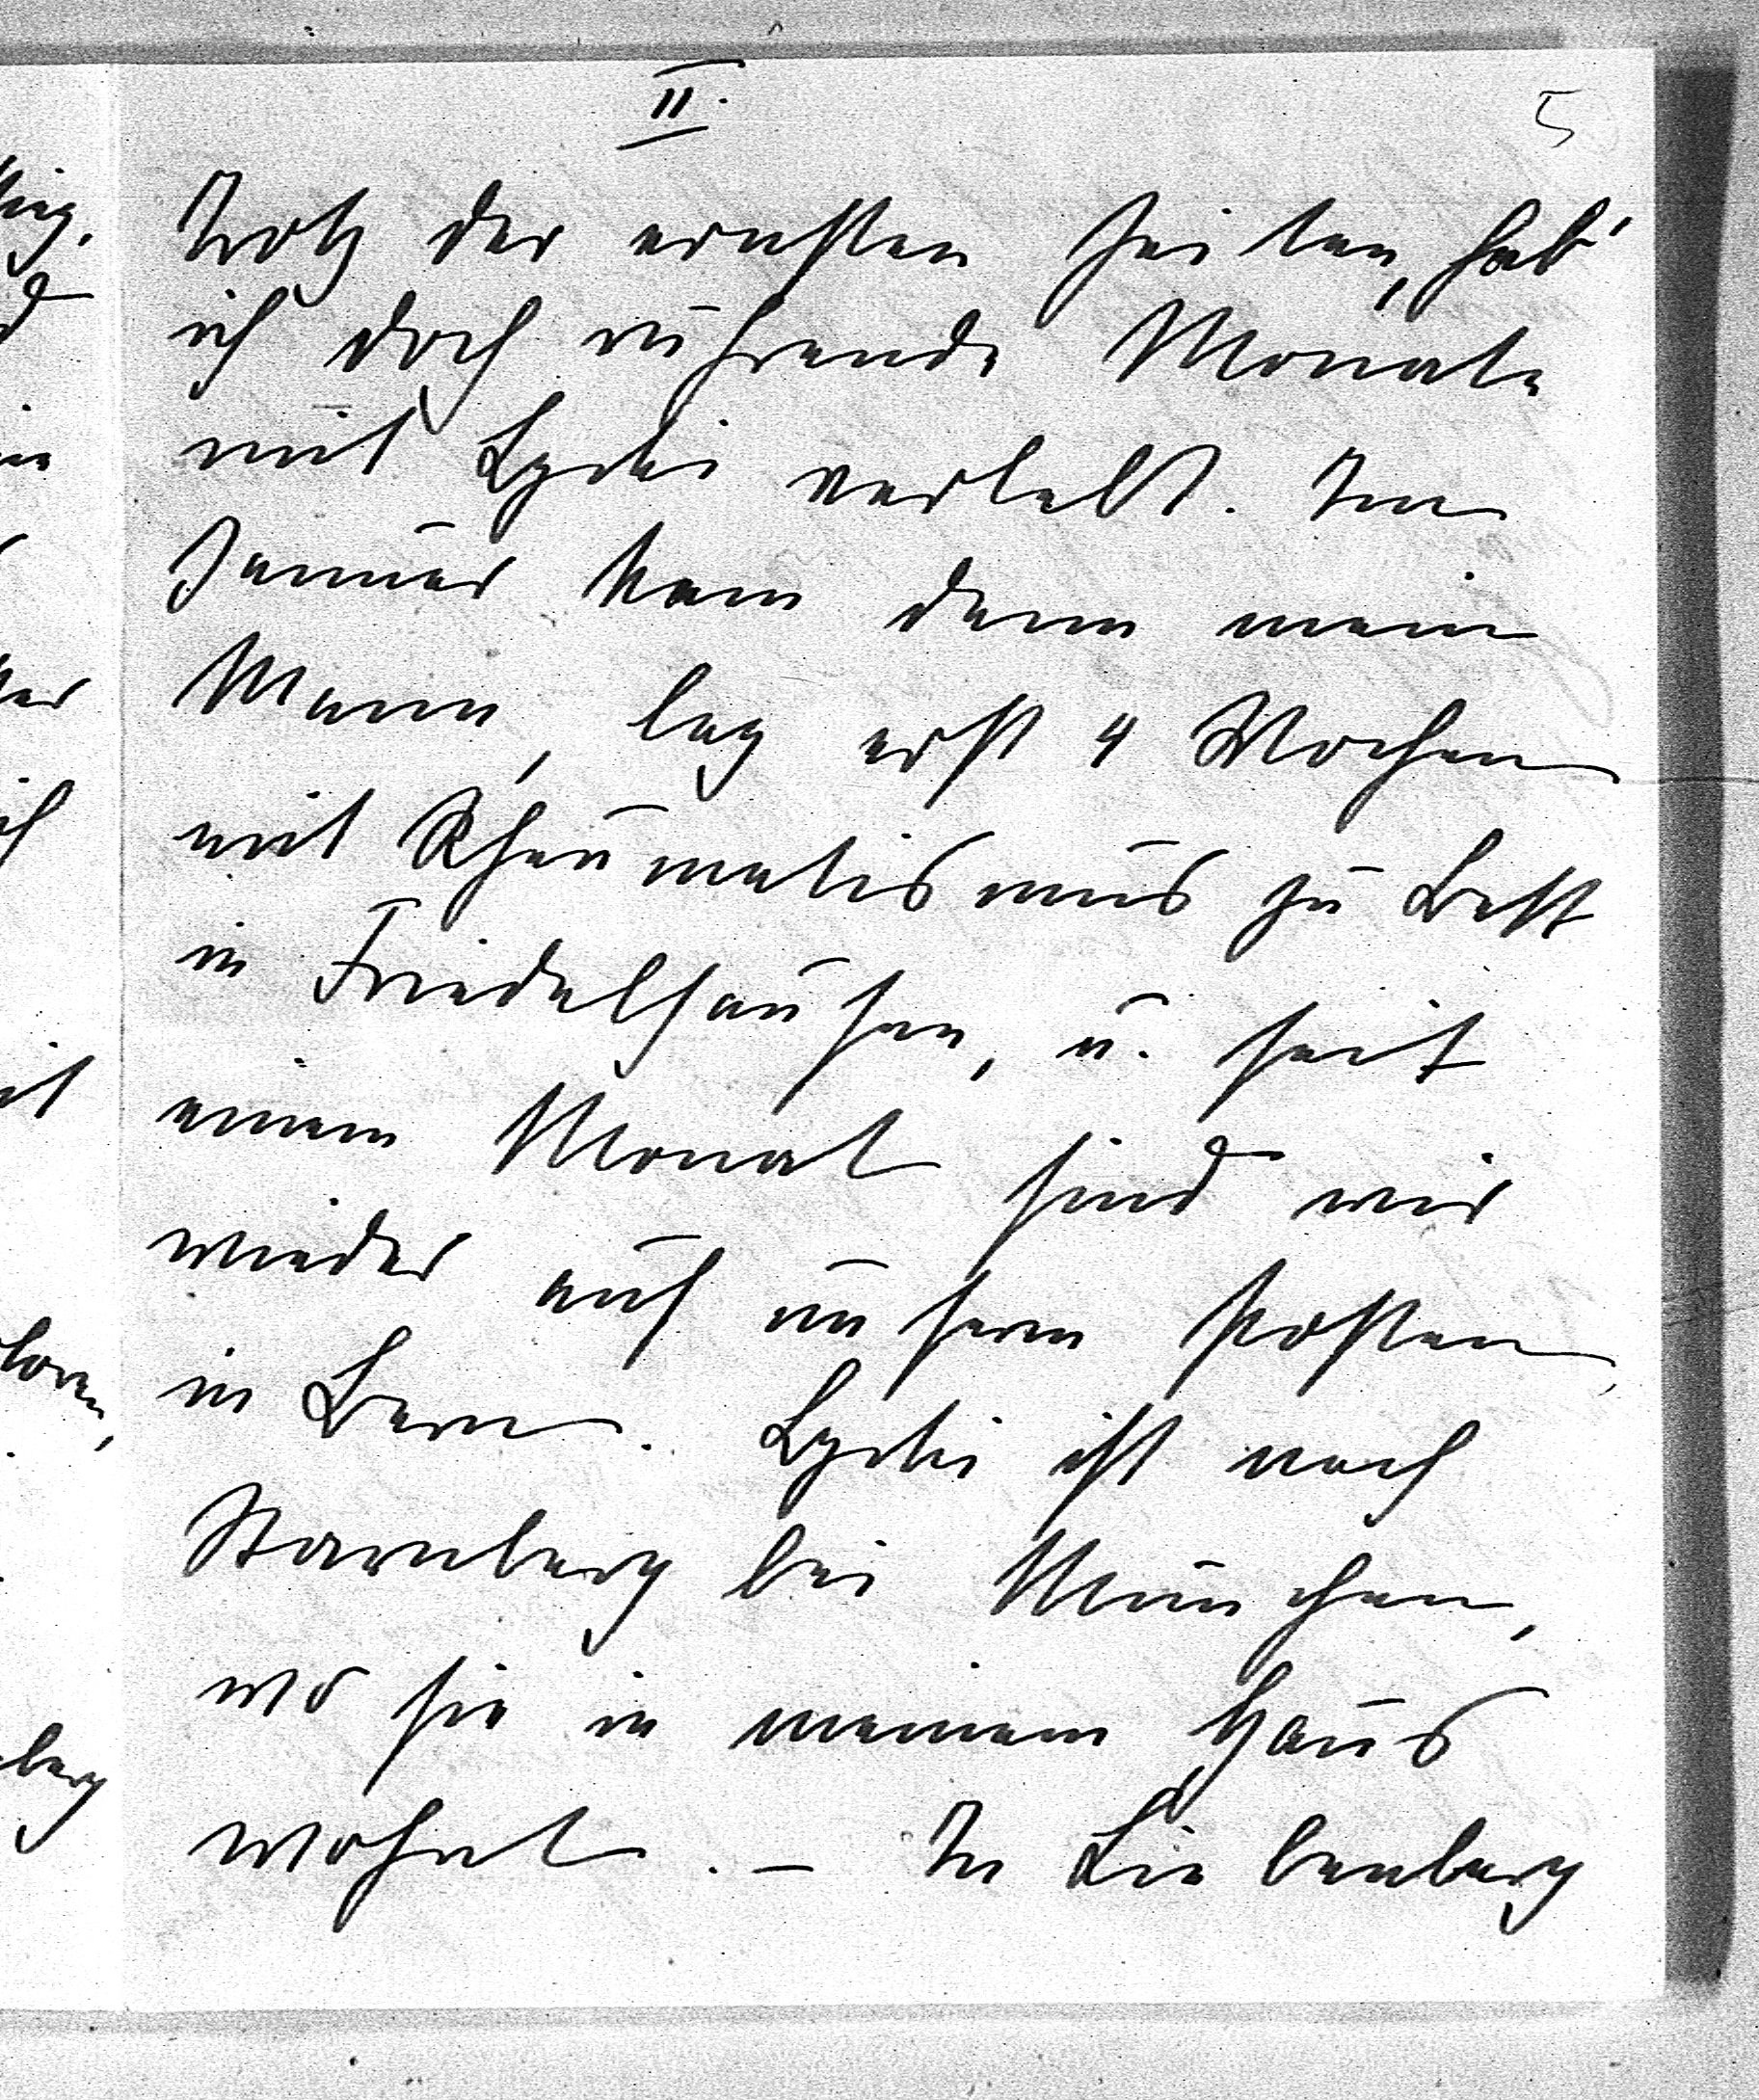 II.
5
Trotz der ernsten Zeiten, hab'
ich doch rührende Monate
mit Lydi verlebt. Im
Januar kam dann mein
Mann, lag erst 4 Wochen
mit Rheumatismus zu Bett
in Friedelhausen, u. seit
einem Monat sind wir
wieder auf unserm Posten
in Bern. Lydi ist nach
Starnberg bei München,
wo sie in meinem Haus
wohnt. – In Liebenberg